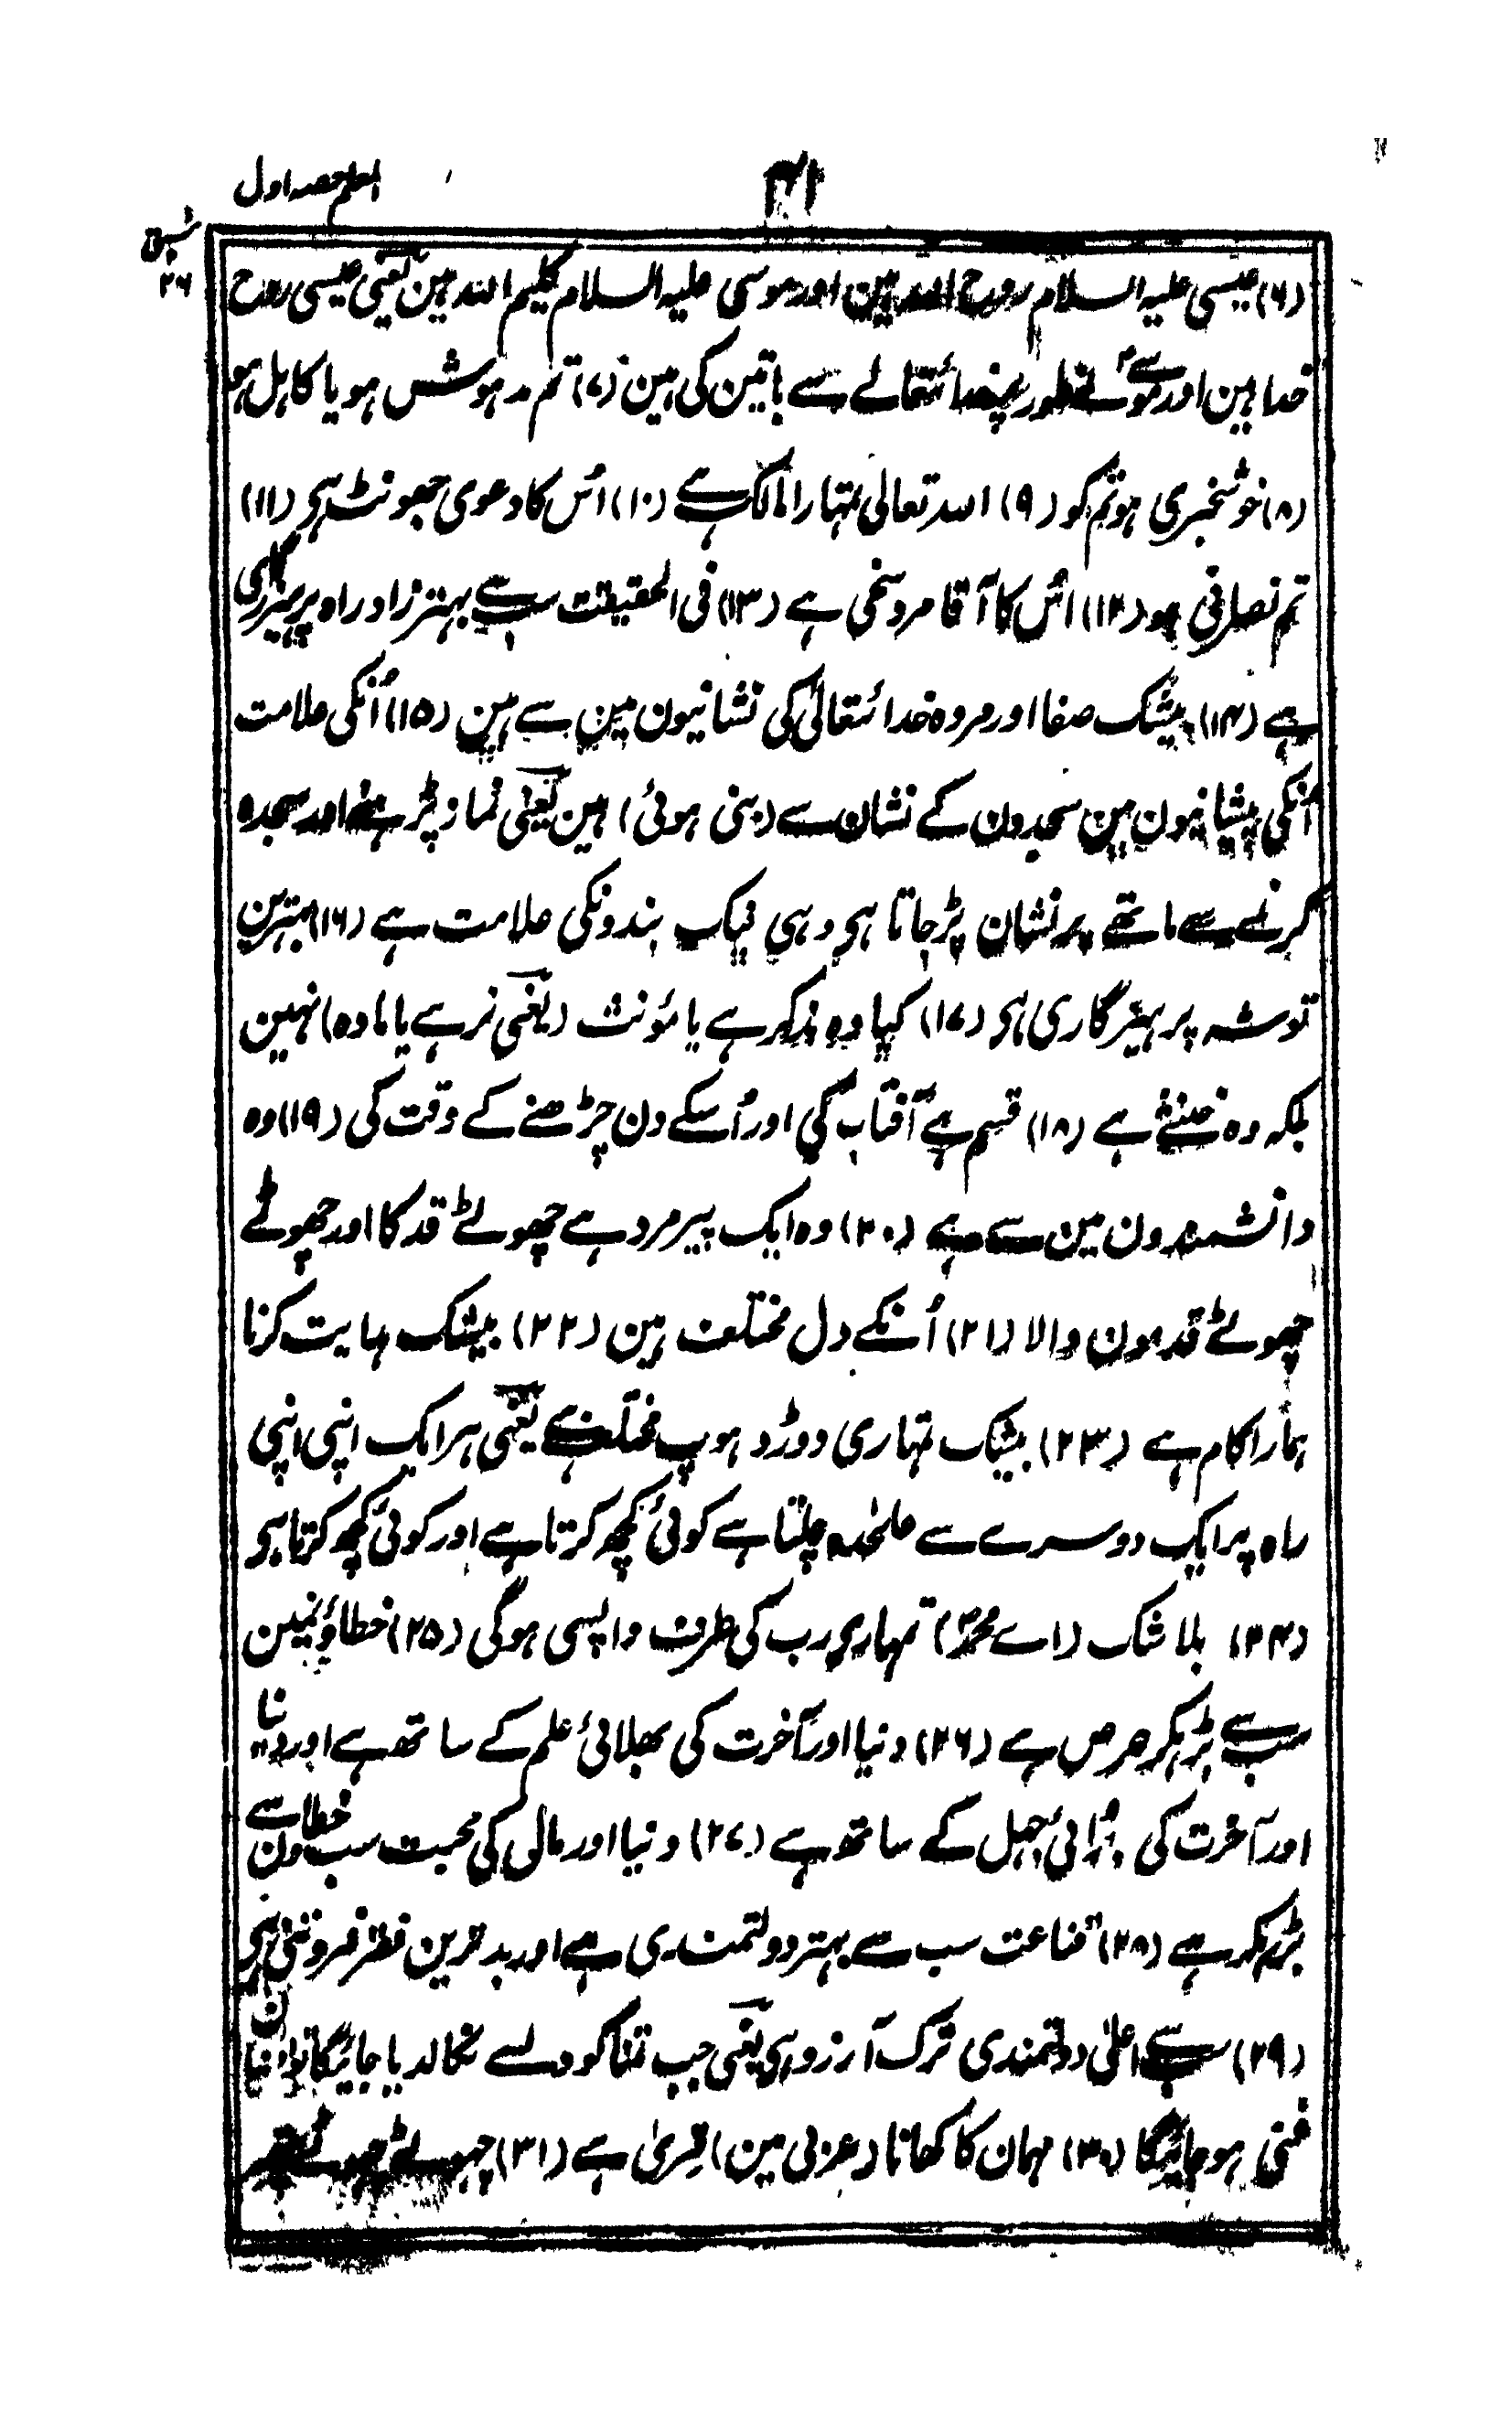 المعلم حصہ اول
سبق
۲۶
(۶) عیسی علیہ السلام روح اللہ ہین اور موسی علیہ السلام کلیم اللہ ہین یعنی عیسی روح
خدا ہین اور موسےٰ نے طور پر خدائتعالے سے باتین کی ہین (۷) تم مدہوش ہو یا کاہل ہو
(۸) خوشخبری ہو تم کو (۹) اللہ تعالی تمہارا مالک ہے (۱۰) اُس کا دعوی جھونٹ ہی (۱۱)
تم نصرانی ہو (۱۲) اُس کا آقا مرد سخی ہے (۱۳) فی الحقیقت سب سے بہتر زاد راہ پرہیزگاری
ہے (۱۴) بیشک صفا اور مروہ خدائتعالیٰ کی نشانیون مین سے ہین (۱۵) اُنکی علامت
اُنکی پیشانیون مین سجدون کے نشان سے (بنی ہوئی) ہین یعنی نماز پڑہنے اور سجدہ
کرنے سے ماتھے پر نشان پڑجاتا ہی وہی نیک بندونکی علامت ہے (۱۶) بہترین
توشہ پرہیزگاری ہی (۱۷) کیا وہ مذکر ہے یا مؤنث (یعنی نر ہے یا مادہ) نہین
بلکہ وہ خنثےٰ ہے (۱۸) قسم ہے آفتاب کی اور اُسکے دن چڑھنے کے وقت کی (۱۹) وہ
دانشمندون مین سے ہے (۲۰) وہ ایک پیر مرد ہے چھوٹے قد کا اور چھوٹے
چھوٹے قدمون والا (۲۱) اُنکے دل مختلف ہین (۲۲) بیشک ہدایت کرنا
ہمارا کام ہے (۲۳) بیشک تمہاری دوڑ دہوپ مختلف ہے یعنی ہر ایک اپنی اپنی
راہ پر ایک دوسرے سے علیٰحدہ چلتا ہے کوئی کچھ کرتا ہے اور کوئی کچھ کرتا ہی
(۲۴) بلا شک (اے محمدؐ) تمہاری رب کی طرف واپسی ہوگی (۲۵) خطاؤنمین
سب سے بڑہکر حرص ہے (۲۶) دنیا اور آخرت کی بھلائی علم کے ساتھ ہے اور دنیا
اور آخرت کی بُرائی جہل کے ساتھ ہے (۲۷) دنیا اور مال کی محبت سب خطاون سے
بڑہکر ہے (۲۸) قناعت سب سے بہتر دولتمندی ہے اور بدترین فقر فروتنی ہی
(۲۹) سب سے اعلیٰ دولتمندی ترک آرزو ہی یعنی جب تمنا کو دلسے نکالدیا جائیگا تو انسان
غنی ہو جائیگا (۳۰) مہمان کا کھانا (عربی مین) قِریٰ ہے (۳۱) چہوٹے چہوٹے